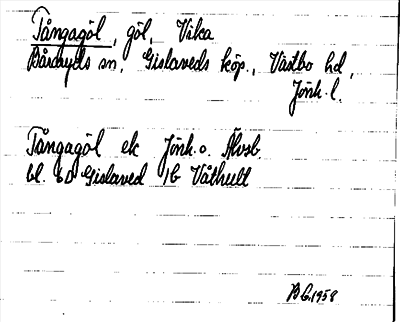 Tångagöl, göl, Vika
Båraryds sn, Gislaveds köp., Västbo hd,
Jönk. l.
Tångagöl ek Jönk. o. Älvsb.
bl. 6D Gislaved 1b Våthult
BG 1958